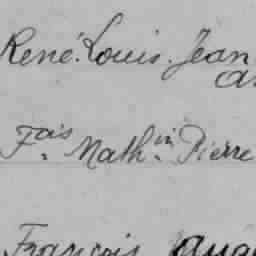 René. Louis. Jean
F.ais Math.in Pierre
François